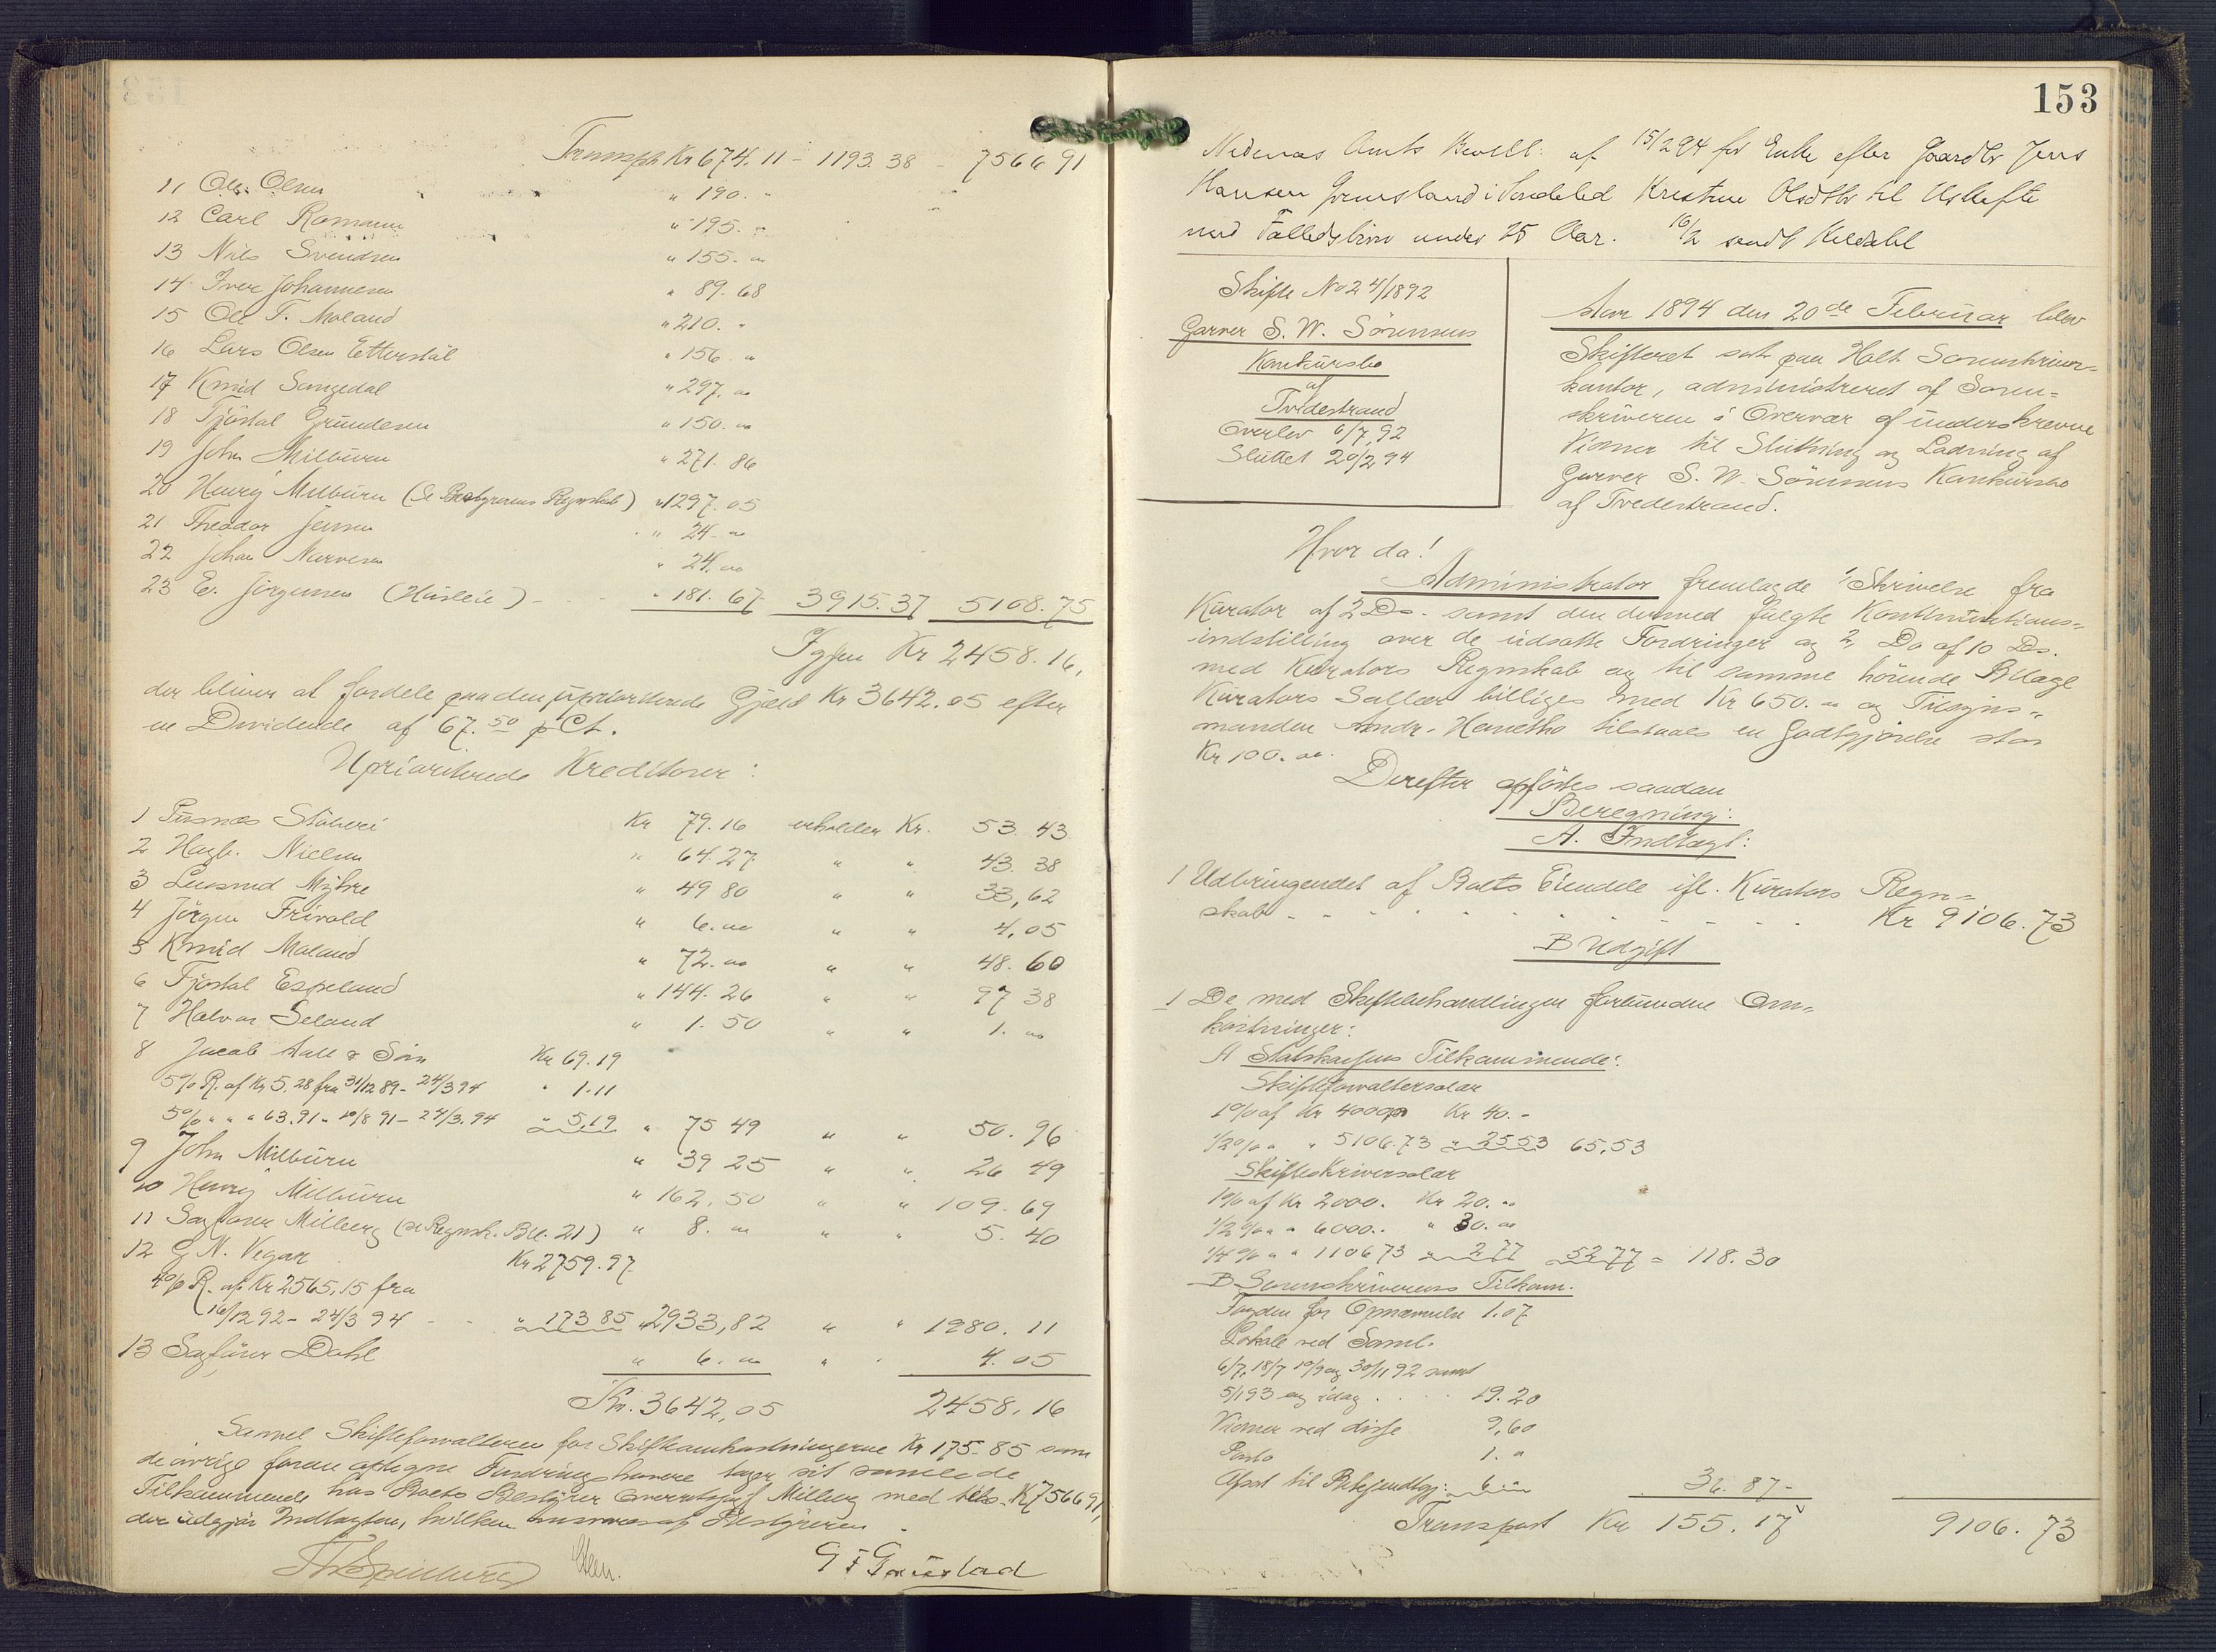 Transpt Kr 674.11 - 1193.38 - 7566 91
11 Ole Olsen " 190. "
12 Carl Romann " 195. "
13 Nils Svendsen " 155. "
14 Iver Johannesen " 89.68
15 Ole T. Moland " 210. "
16 Lars Olsen Etterstøl " 156. "
17 Knud Songedal " 297. "
18 Tjöstal Gundersen " 150. "
19 John Milburn " 271.86
20 Henry Milburn (Se Bestyrerens Regnskab) " 1297.05
21 Theodor Jensen " 24. "
22 Johan Narvesen " 24. "
23 E. Jörgensen (Husleie) - " 181.67 3915.37 5108.75
Igjen Kr 2458.16,
der bliver at fordele paa den upriorterede Gjæld Kr 3642.05 efter
en Dividende af 67.50 pCt.
Upriorterede Kreditorer:
1 Støberi Kr 79.16 erholder Kr. 53.43
2 Hagb. Nielsen " 64.27 " " 43.38
3 Lensmd Myhre " 49 80 " " 33,62
4 Jörgen Frivold " 6. " " " 4,05
5 Knud Moland " 72. " " " 48.60
6 Tjöstal Espeland " 144.26 " " 97 38
7 Halvor Seland " 1.50 " " 1. "
8 Jacob Aall & Sön Kr 69.19
5% R. af Kr 5.28 fra 31/12 89 - 24/3 94 " 1.11
5% " " " 63.91 - 10/8 91 - 24/3.94 " 5,19 " 75 49 " " 50.96
9 John Milburn " 39 25 " " 26 49
10 Henry Milburn " 162.50 " " 109.69
11 Sagförer Milberg (se Regnsk. Bil. 21) " 8. " " " 5.40
12 G N. Vegar Kr 2759.97
4% R. af Kr 2565,15 fra
16/12 92 - 24/3 94 - - " 173 85 " 2933,82 " " 1980.11
13 Sagförer Dahl " 6. " " " 4.05
Kr. 3642,05 2458.16
Saavel Skifteforvalteren for Skifteomkostningerne Kr 175.85 som
de övrige foran opfegne Fordringshavere tager sit samlede
Tilkommende hos Boets Bestyrer Overretssagf Milberg med tils. Kr 7566 91,
der udgjør Indtægten, hvilken Bestyreren.
G F Graastad
153
Nedenæs Amts Bevill: af 15/2 94 for Enke efter Gaardbr Jens
Hansen Grimsland i Söndeled Kristine Olsdtr til Uskifte
med Fælledsbörn under 25 Aar. 16/2 sendt Kildahl
Skifte No 24/1892
Garver S. W. Sörensens
Konkursbo
af
Tvedestrand
Overlev 6/7,92
Sluttet 20/2,94
Aar 1894 den 20de Februar blev
Skifteret sat paa Holt Sorenskriver-
kontor, administreret af Soren-
skriveren i Overvær af underskrevne
Vidner til Slutning og Lodning af
Garver S. W. Sörensens Konkursbo
af Tvedestrand.
Hvor da!
Administrator fremlagde 1/ Skrivelse fra
Kurator af 2 Ds. samt den dermed fulgte
indstilling over de udsatte Fordringer og 2, Do af 10 Ds.
med Kurators Regnskab og til samme hörende Bilage
Kurators Sallær billiges med Kr 650. " og Tilsyns-
manden Andr. Hanetho tilstaaes en Godtgjörelse stor
Kr 100. "
Derefter opförtes saadan
Beregning:
A. Indtægt:
1 Udbringendet af Boets Eiendele ifl. Kurators Regn-
skab - - - - - - - - Kr 9106.73
B Udgift
1 De med Skiftebehandlingen forbundne Om-
kostninger:
A Statskassens Tilkommende:
Skifteforvaltersalær
1% af Kr 4000 Kr 40. -
1/2% " " 5106.73 " 25 53 65,53
Skifteskriversalær
1% af Kr 2000. Kr 20. "
1/2% " " 6000. " 30. "
1/4% " " 1106 73 " 2 77 52 77 = 118.30
B Sorenskriverens Tilkom.
Fogden for Opnævnelse 1.07
Lokale ved Saml.
6/7, 18/7 19/9 og 30/11 92 samt
5/1 93 og idag . . . 19.20
Vidner ved disse 9,60
Porto 1. "
Afsat til Bekjendtgj: 6. " 36.87 -
Transport Kr 155.17 9106.73